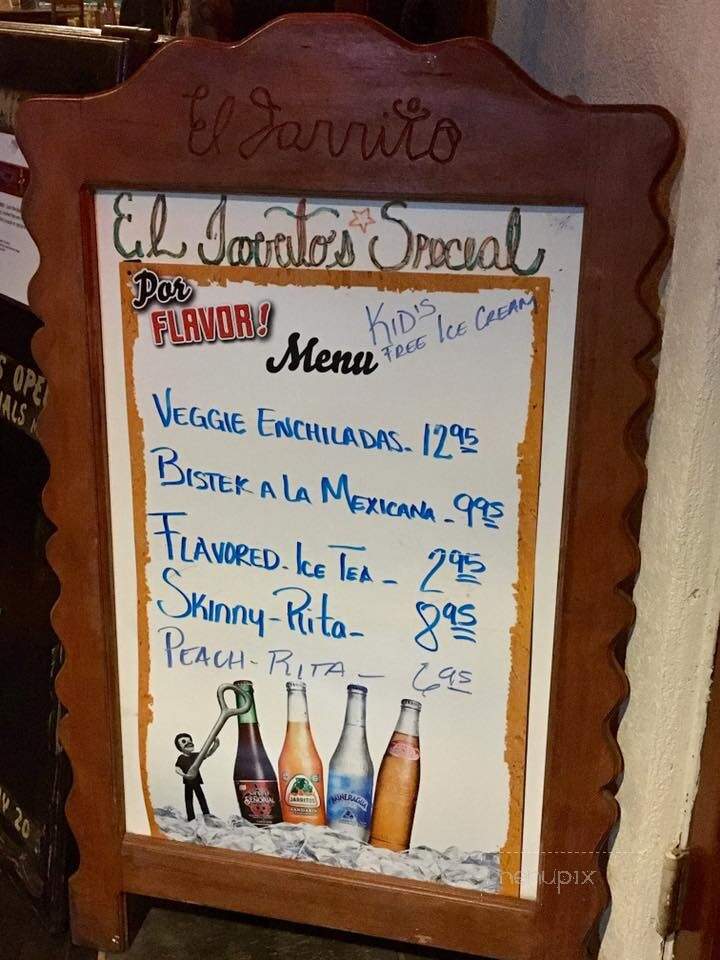 El Jarrito
El Jarrito's Special
Por
FLAVOR!
Menu
KID'S
FREE ICE CREAM
VEGGIE ENCHILADAS. 12 95
BISTEK A LA MEXICANA - 9 95
FLAVORED. ICE TEA - 2 95
SKINNY-Rita- 8 95
PEACH-RITA - 6 95
SEÑORIAL
JARRITOS
MANDARIN
MINERAGUA
S OPE
IALS
20
menupix